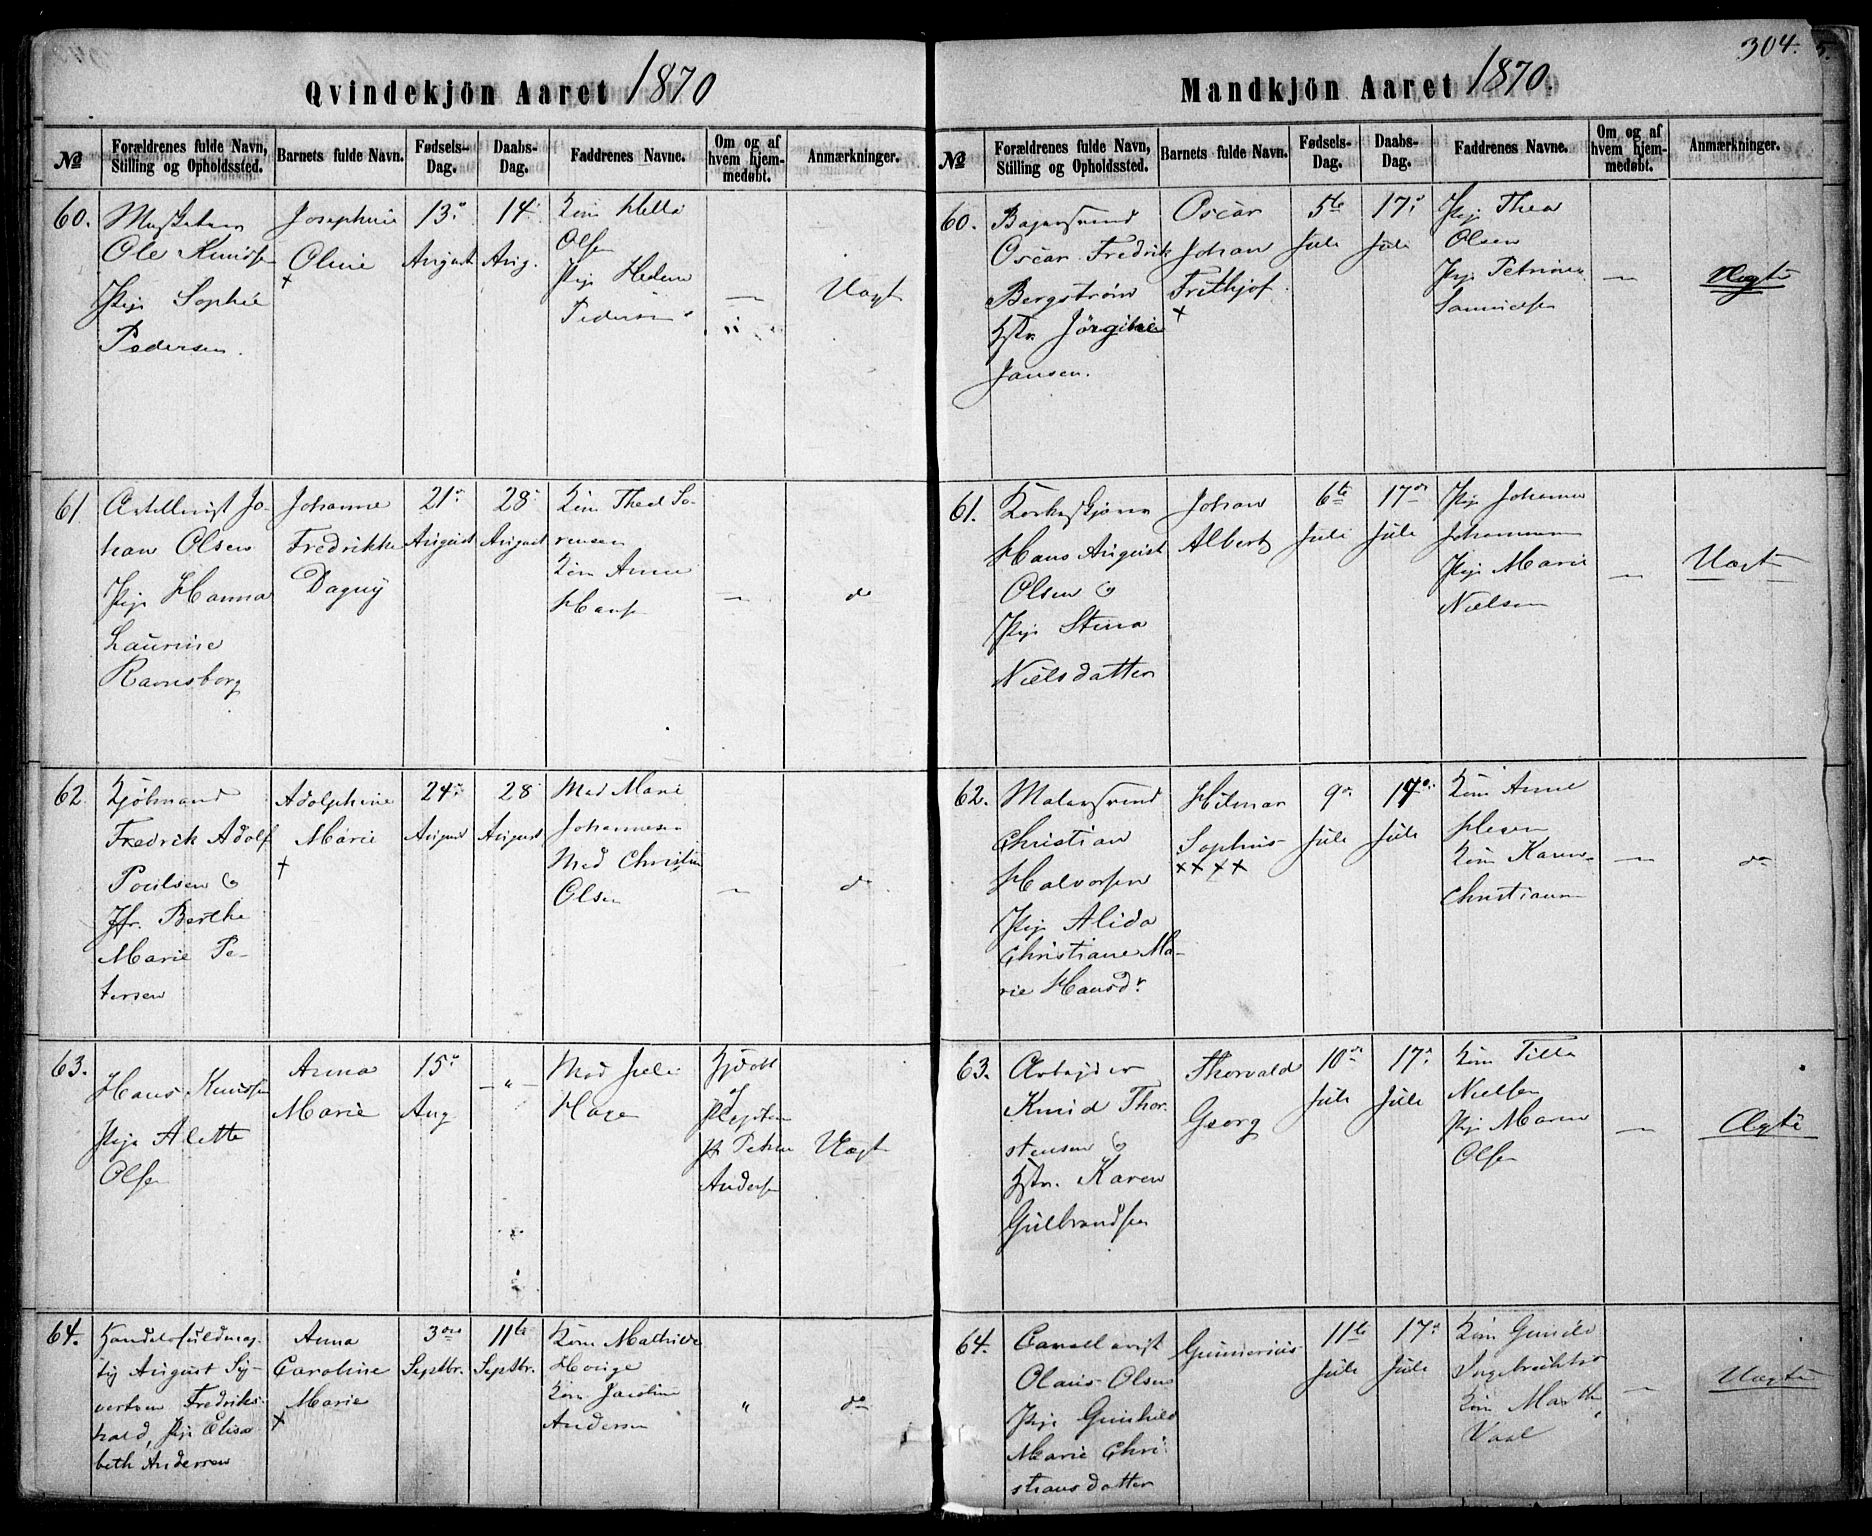 304.
5.
Qvindekjön Aaret 1870
№
Forældrenes fulde Navn, Stilling og Opholdssted.
Barnets fulde Navn.
Fødsels-Dag.
Daabs-Dag.
Faddrenes Navne.
Om og af hvem hjem-medøbt.
Anmærkninger.
60.
Ole Knudsen
Pige Sophie
Pedersen.
Josephine
Oline
+
13de
August
14
Aug.
Olsen
Pige Helene
Pedersen
—
Uægt
61
Artillerist Jo-
han Olsen
Pige Hanna
Laurine
Ravnsborg
Johanne
Fredrikke
Dagny
21de
August
28
August
Kone Thea So-
rensen
Kone Anne
Hansen
—
do
62.
Kjøbmand
Fredrik Adolf
Poulsen &
Jfr. Berthe
Marie Pe-
tersen
Adolphine
Marie
+
24de
August
28
August
Mad Marie
Johannesen
Mad Christine
Olsen
—
do
63.
Hans Knudsen
Pige Alette
Olsen
Anna
Marie
15de
Aug
— " —
Mad Julie
Hage
Hjdøbt
af
Petra
Andersen
Uægt
64.
Handelsfuldmæg-
tig August Sy-
vertsen Fredriks-
hald, Pige Elisa
beth Andersen
Anna
Caroline
Marie
+
3die
Septbr.
11te
Septbr.
Kone Mathilde
Hauge
Kone Jacobine
Andersen
"
do
Mandkjön Aaret 1870.
№
Forældrenes fulde Navn, Stilling og Opholdssted.
Barnets fulde Navn.
Fødsels-Dag.
Daabs-Dag.
Faddrenes Navne.
Om og af hvem hjem-medøbt.
Anmærkninger.
60.
Bagersvend
Oscar Fredrik
Bergstrøm
Hstr. Jørgine
Jansen.
Oscar
Johan
Frithjof
+
5te
Juli
17de
Juli
Pige Thea
Olsen
Pige Petrine
Samuelsen
—
Ægte
61.
Hans August
Olsen &
Pige Stina
Nielsdatter
Johan
Albert
6te
Juli
17de
Juli
Pige Johanne
Johannesen
Pige Marie
Nielsen
—
Uægt
62.
Malersvend
Christian
Halvorsen
Pige Alida
Christiane Ma-
rie Hansdr
Hilmar
Sophus
++++
9de
Juli
Juli
Kone Anne
Kone Karen
Christiansen
—
do
63.
Arbejder
Knud Thor-
stensen &
Hstr. Karen
Gulbrandsen
Thorvald
Georg
10de
Juli
17de
Juli
Kone Tilla
Nielsen
Pige Maren
Olsen
—
Ægte
64.
Olaus Olsen
Pige Gunhild
Marie Chri-
stiansdatter
Gunnerius
11te
Juli
17de
Juli
Kone Gunild
Ingebriktsen
Kone Marthe
Vaal
—
Uægte